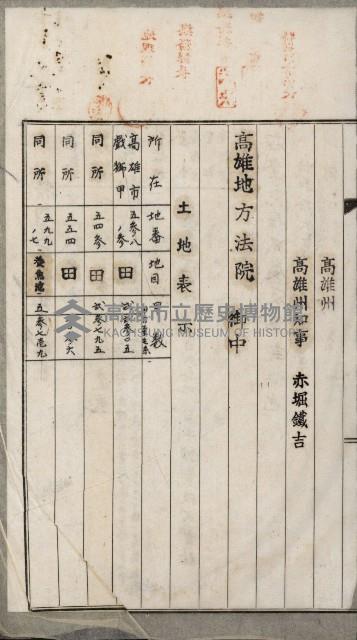 高雄州
高雄州知事 赤堀鐵吉
高雄地方法院 御中
土地表示
所在 地番 地目 甲數
高雄市戲獅甲 五參八ノ參 田
同所 五四參 田 貳參七九五
同所 五五四 田
同所 五九九ノ七 養魚池 五參七壱九
高雄市立歷史博物館
KAOHSIUNG MUSEUM OF HISTORY